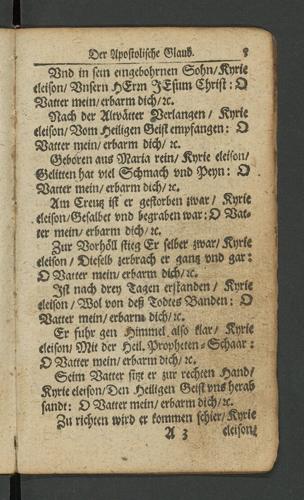 Der Apostolische Glaub. 5
Vnd in sein eingebohrnen Sohn/ Kyrie
eleison/ Vnsern HErrn JEsum Christ: O
Vatter mein/ erbarm dich/ ꝛc.
Nach der Altvätter Verlangen / Kyrie
eleison/ Vom Heiligen Geist empfangen: O
Vatter mein/ erbarm dich/ ꝛc.
Geboren aus Maria rein/ Kyrie eleison/
Gelitten hat viel Schmach vnd Peyn: O
Vatter mein/ erbarm dich/ ꝛc.
Am Creutz ist er gestorben zwar/ Kyrie
eleison/ Gesalbet vnd begraben war: O Vat-
ter mein/ erbarm dich/ ꝛc.
Zur Vorhöll stieg Er selber zwar/ Kyrie
eleison / Dieselb zerbrach er gantz vnd gar:
O Vatter mein/ erbarm dich/ ꝛc.
Ist nach drey Tagen erstanden / Kyrie
eleison/ Wol von deß Todtes Banden: O
Vatter mein/ erbarm dich/ ꝛc.
Er fuhr gen Himmel also klar/ Kyrie
eleison/ Mit der Heil. Propheten-Schaar:
O Vatter mein/ erbarm dich/ ꝛc.
Seim Vatter sitzt er zur rechten Hand/
Kyrie eleison/ Den Heiligen Geist vns herab
sandt: O Vatter mein/ erbarm dich/ ꝛc.
Zu richten wird er kommen schier/ Kyrie
A 3 eleison/